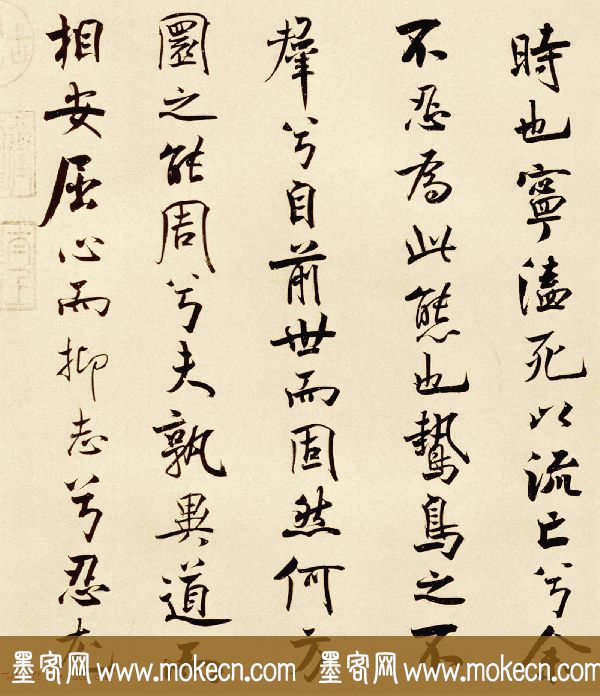 時也寧溘死以流亡兮余
不忍為此態也鷙鳥之不
羣兮自前世而固然何方
圜之能周兮夫孰異道而
相安屈心而抑志兮忍尤
墨客网 www.mokecn.com 墨客网 www.mokecn.com